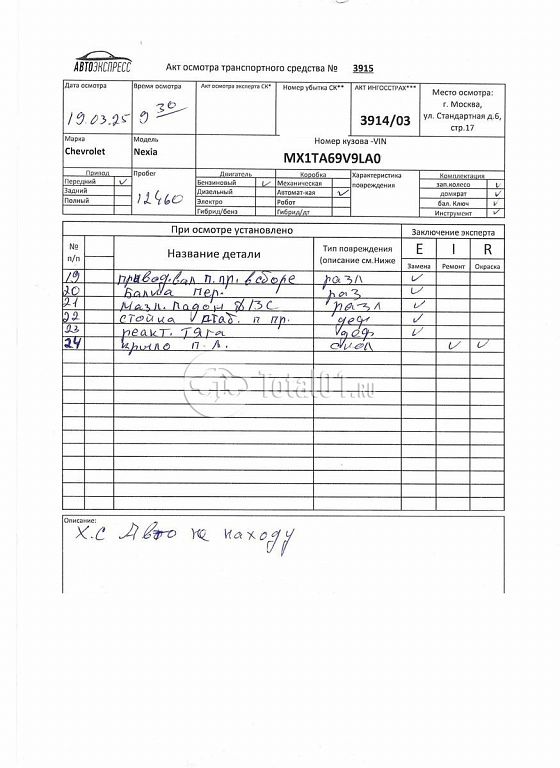 АВТОЭКСПРЕСС
Акт осмотра транспортного средства № 3915
Дата осмотра Время осмотра Акт осмотра эксперта СК* Номер убытка СК** АКТ ИНГОССТРАХ*** Место осмотра:
г. Москва,
ул. Стандартная д.6,
стр.17
19.03.25 9 30 3914/03
Марка Модель Номер кузова -VIN
Chevrolet Nexia MX1TA69V9LA0
Привод Пробег Двигатель Коробка Характеристика повреждения Комплектация
Передний Бензиновый Механическая зап.колесо
Задний 12460 Дизельный Автомат-кая домкрат
Полный Электро Робот бал. Ключ
Гибрид/бенз Гибрид/дт Инструмент
При осмотре установлено Заключение эксперта
№ п/п Название детали Тип повреждения (описание см.Ниже E I R
Замена Ремонт Окраска
19 привод.вал п.пр. в сборе разл
20 Балка пер. раз
21 разл
22 стойка стаб. п пр. деф
23 реакт. тяга деф
24 крыло п.л.
Total01.ru
Описание:
Х.С Авто не на ходу